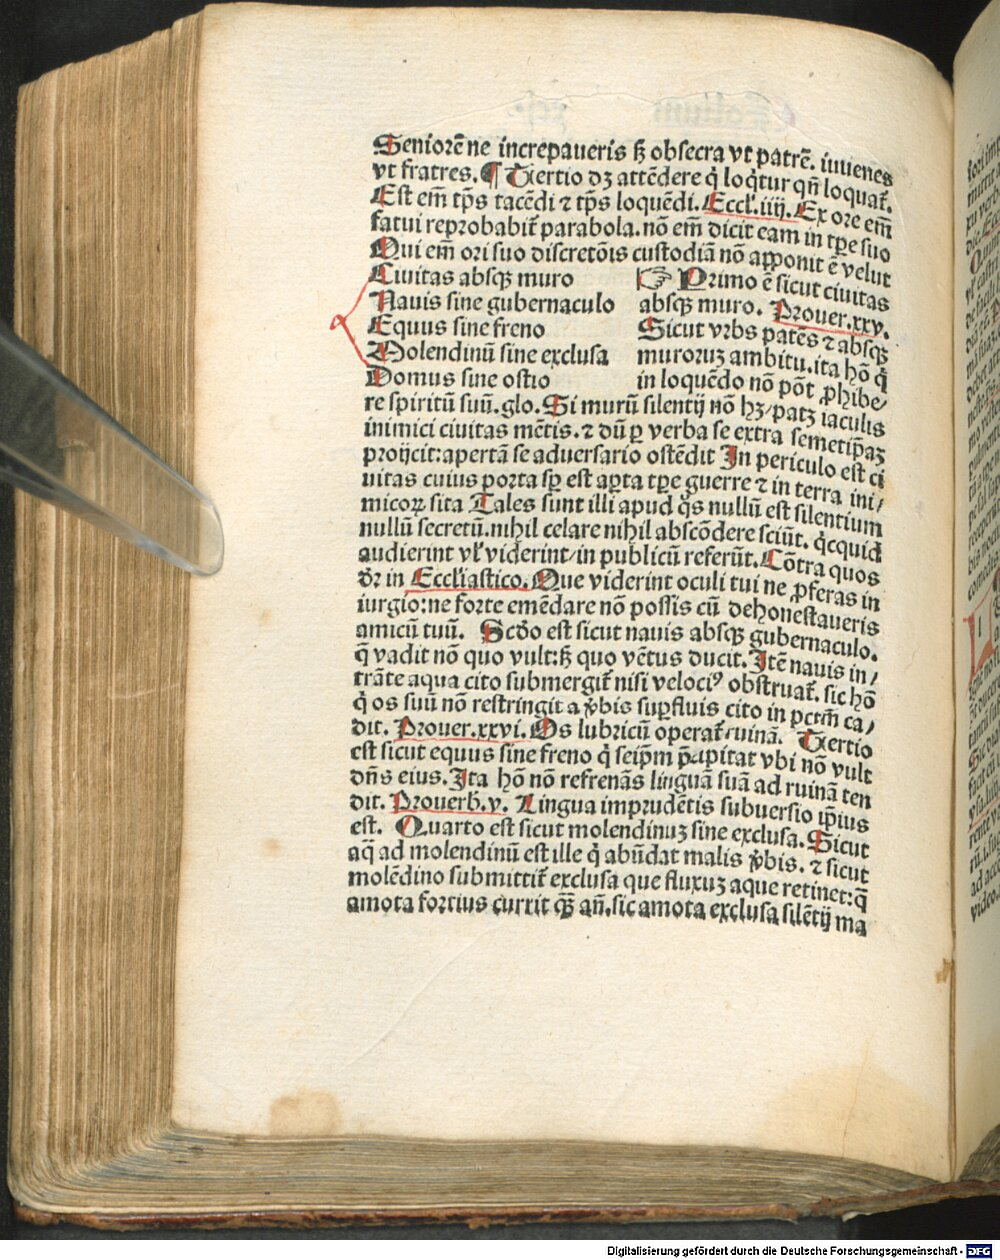 Seniorē ne increpaueris sꝫ obsecra vt patrē. iuuenes
vt fratres. ¶ Tiertio dꝫ attēdere q̇ loq̄tur qn̄ loquat᷑.
Est em̄ tp̄s tacēdi ⁊ tp̄s loquēdi. Eccl̓.iiij. Ex ore em̄
fatui reprobabit᷑ parabola. nō em̄ dicit eam in tp̄e suo
Qui em̄ ori suo discretōis custodiā nō apponit ē velut
Ciuitas absqꝫ muro
Nauis sine gubernaculo
Equus sine freno
Molendinū sine exclusa
Domus sine ostio
☞ Primo ē sicut ciuitas
absqꝫ muro. Prouer.xxv.
Sicut vrbs patēs ⁊ absqꝫ
muroruꝫ ambitu. ita hō q̇
in loquēdo nō pōt ꝓhibe/
re spiritū suū. glo. Si murū silentij nō hꝫ/patꝫ iaculis
inimici ciuitas mētis. ⁊ dū ꝑ verba se extra semetip̄aꝫ
proijcit: apertā se aduersario ostēdit In periculo est ci
uitas cuius porta sꝑ est aꝑta tp̄e guerre ⁊ in terra ini/
micoꝝ sita Tales sunt illi apud q̊s nullū est silentium
nullū secretū. nihil celare nihil abscōdere sciūt. q̇cquid
audierint vl̓ viderint/in publicū referūt. Cōtra quos
dr̄ in Eccl̓iastico. Que viderint oculi tui ne ꝓferas in
iurgio: ne forte emēdare nō possis cū dehonestaueris
amicū tuū. Scd̄o est sicut nauis absqꝫ gubernaculo.
q̄ vadit nō quo vult: sꝫ quo vētus ducit. Itē nauis in/
trāte aqua cito submergit᷑ nisi velociꝰ obstruat᷑. sic hō
q̇ os suū nō restringit a v̓bis suꝑfluis cito in pctm̄ ca/
dit. Prouer.xxvi. Os lubricū operat᷑ ruinā. Tiertio
est sicut equus sine freno q̇ seip̄m p̄cipitat vbi nō vult
dn̄s eius. Ita hō nō refrenās linguā suā ad ruinā ten
dit. Prouerb̓.v. Lingua imprudētis subuersio ip̄ius
est. Quarto est sicut molendinuꝫ sine exclusa. Sicut
aq̄ ad molendinū est ille q̇ abūdat malis v̓bis. ⁊ sicut
molēdino submittit᷑ exclusa que fluxuꝫ aque retinet: q̄
amota fortius currit qꝫ̄ an̄. sic amota exclusa silētij ma
Digitalisierung gefördert durch die Deutsche Forschungsgemeinschaft - DFG